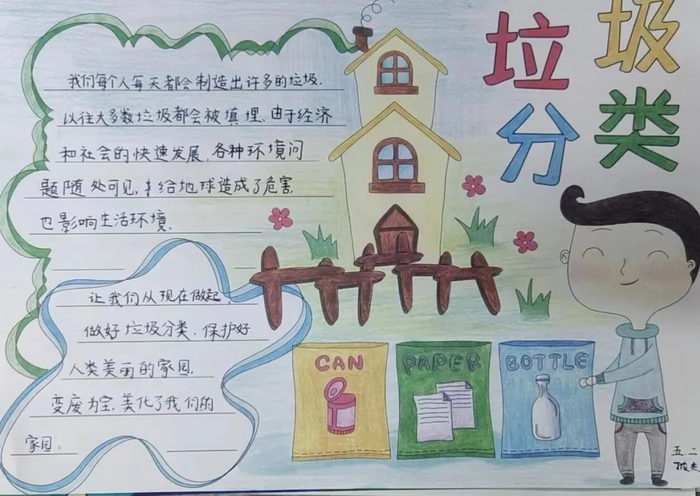 垃圾
分类
我们每个人每天都会制造出许多的垃圾.
以往大多数垃圾都会被填埋.由于经济
和社会的快速发展.各种环境问
题随处可见,给地球造成了危害
也影响生活环境.
让我们从现在做起
做好垃圾分类.保护好
人类美丽的家园.
变废为宝.美化了我们的
家园.
CAN
PAPER
BOTTLE
五二